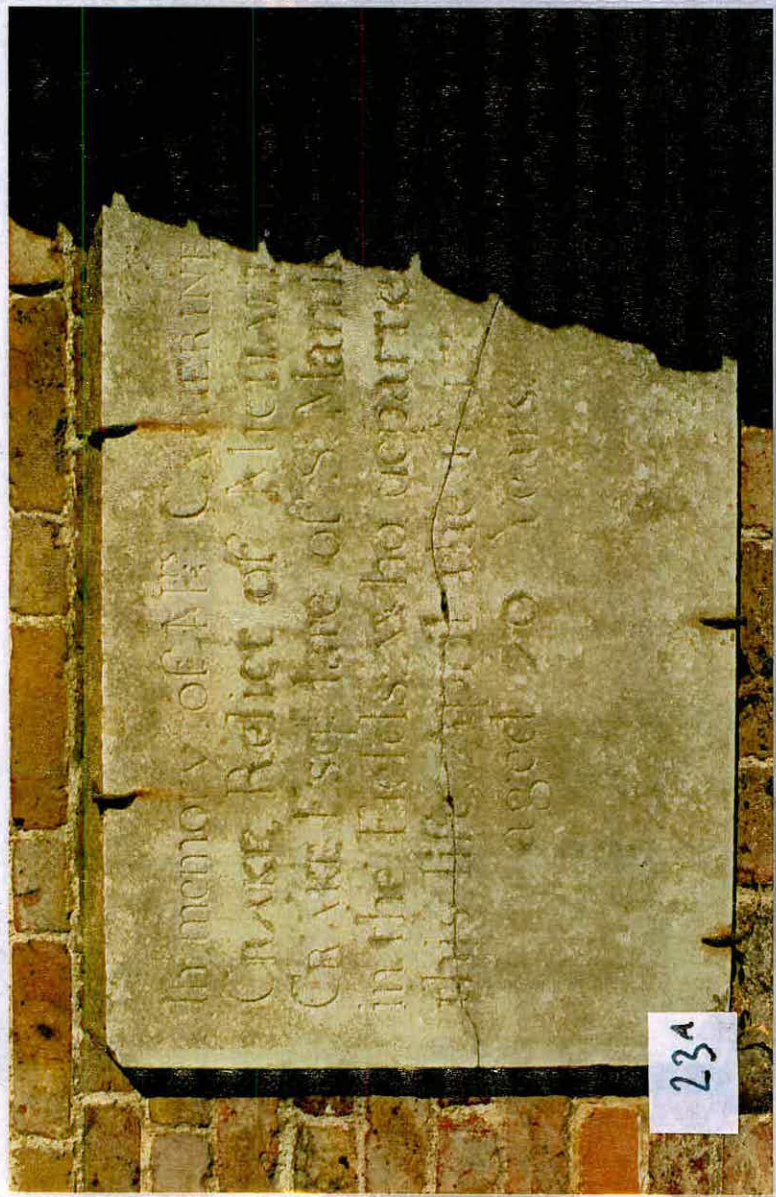 In memory of Mrs CATHERINE
CRAKE, Relict of MICHAEL
CRAKE Esqr. late of St. Martin
in the Fields: who departe
this life April the
aged 70 Years.
23A